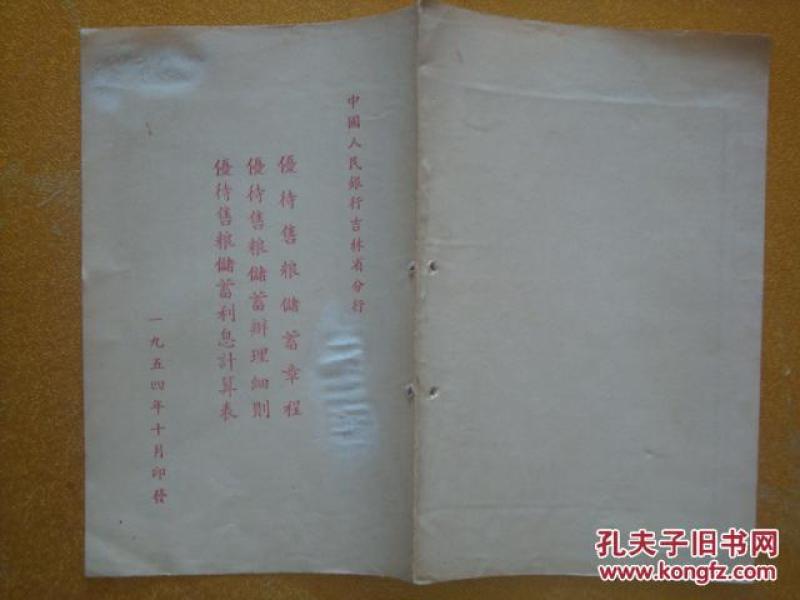 中國人民銀行吉林省分行
優待售粮儲蓄章程
優待售粮儲蓄辦理細則
優待售粮儲蓄利息計算表
一九五四年十月印發
孔夫子旧书网
www.kongfz.com